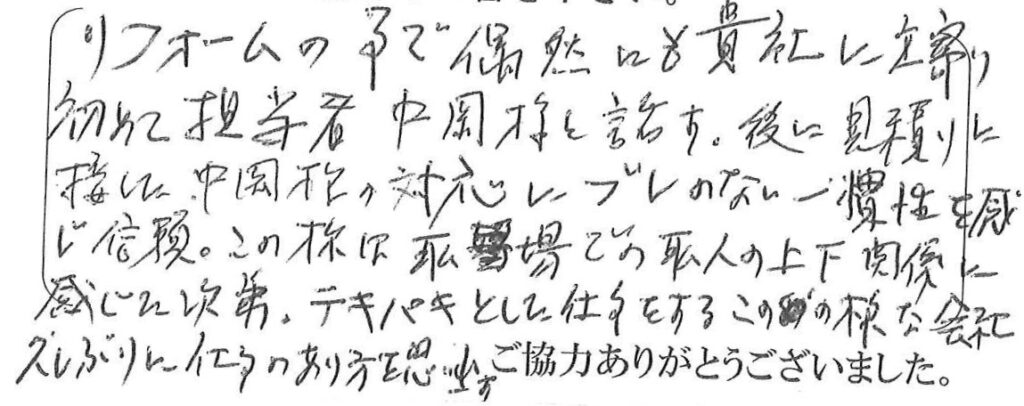 リフォームの事で偶然にも貴社に立寄り
初めて担当者中岡様と話す。後に見積りに
接した中岡様の対応にブレのない一慣性を感
じ信頼。この様は職場での職人の上下関係に
感じた次第。テキパキとした仕事をするこの様な会社
久しぶりに仕事のあり方を思い出す
ご協力ありがとうございました。